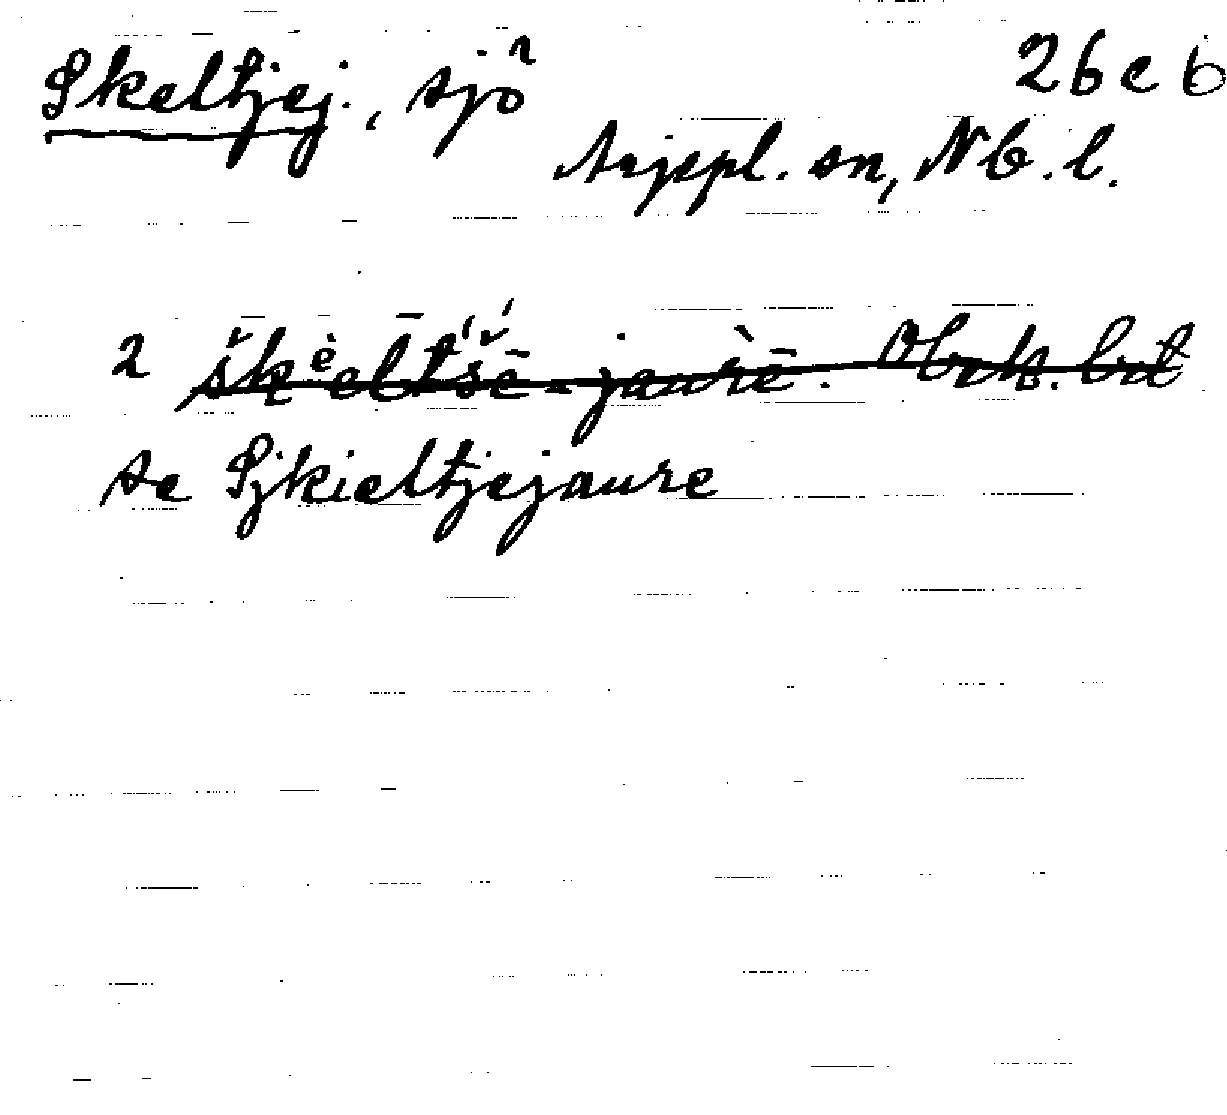 Skeltjej., sjö 26 c 6
Arjepl. sn, Nb. l.
2 šk ̀eelt́šē-jaurè̄.
se Sjkieltjejaure